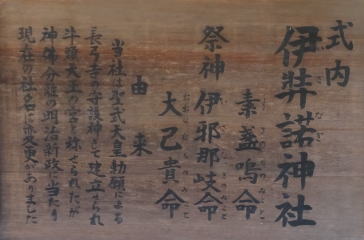 式内
伊弉諾神社
祭神
素盞嗚命
伊邪那岐命
大己貴命
由来
当社は聖武天皇勅願による
長弓寺の守護神として建立され
牛頭天王の宮と称せられたが
神佛分離の明治新政に当たり
現在の社名に変更ありました